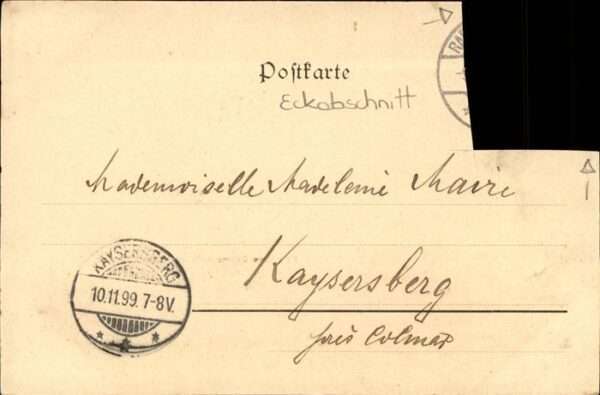 Postkarte
Eckabschnitt
RA
Mademoiselle Madeleine Maire
Kaysersberg
près Colmar
KAYSERSBERG
10.11.99. 7-8V.